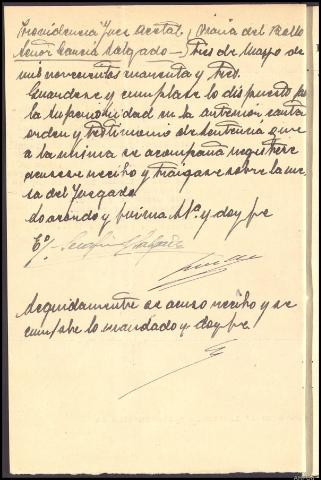 Providencia Juez Acctal, Viana del Bollo
Señor García Salgado — Tres de Mayo de
mil novecientos cuarenta y tres.
Guardese y cumplase lo dispuesto por
la Superioridad en la anterior carta
orden y testimonio de sentencia que
a la misma se acompaña registrese
acusese recibo y traigase sobre la me
sa del Juzgado.
Lo acordó y firma Sª. y doy fe
Eº/.
Seguidamente se acuso recibo y se
cumple lo mandado y doy fe